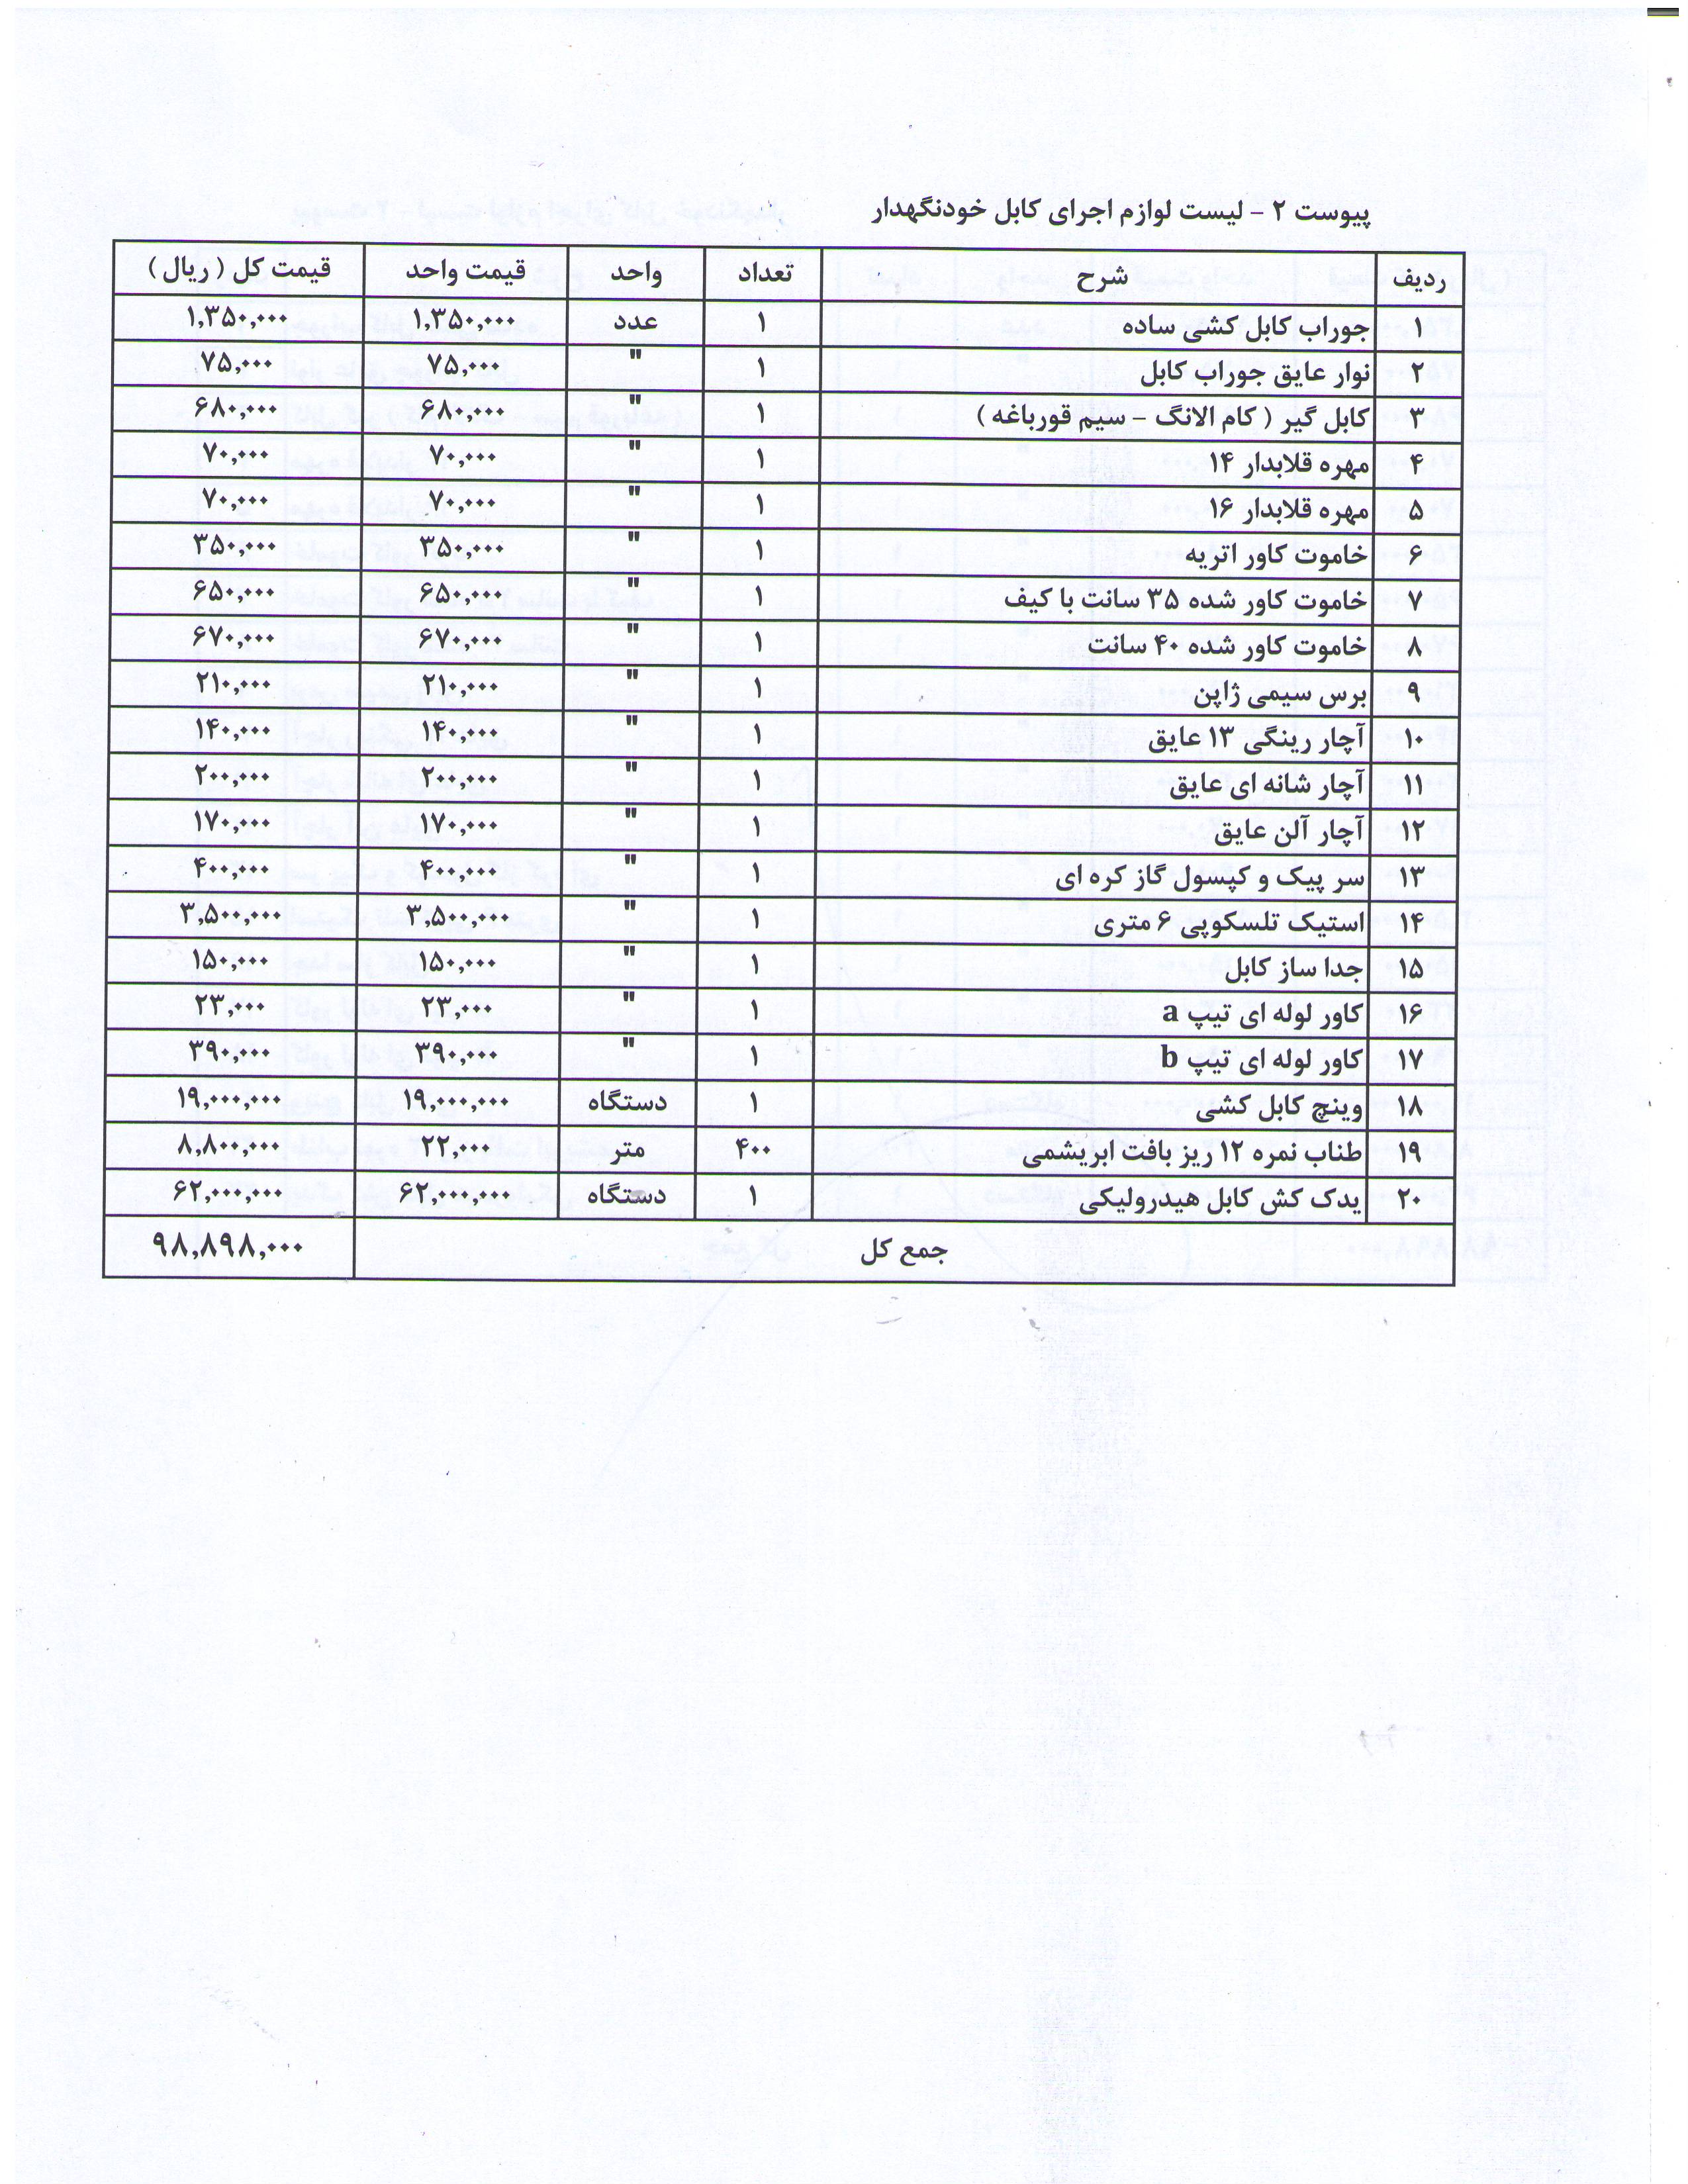 پیوست ۲ – لیست لوازم اجرای کابل خودنگهدار
ردیف شرح تعداد واحد قیمت واحد قیمت کل ( ریال )
۱ جوراب کابل کشی ساده ۱ عدد ۱,۳۵۰,۰۰۰ ۱,۳۵۰,۰۰۰
۲ نوار عایق جوراب کابل ۱ " ۷۵,۰۰۰ ۷۵,۰۰۰
۳ کابل گیر ( کام الانگ – سیم قورباغه ) ۱ " ۶۸۰,۰۰۰ ۶۸۰,۰۰۰
۴ مهره قلابدار ۱۴ ۱ " ۷۰,۰۰۰ ۷۰,۰۰۰
۵ مهره قلابدار ۱۶ ۱ " ۷۰,۰۰۰ ۷۰,۰۰۰
۶ خاموت کاور اتریه ۱ " ۳۵۰,۰۰۰ ۳۵۰,۰۰۰
۷ خاموت کاور شده ۳۵ سانت با کیف ۱ " ۶۵۰,۰۰۰ ۶۵۰,۰۰۰
۸ خاموت کاور شده ۴۰ سانت ۱ " ۶۷۰,۰۰۰ ۶۷۰,۰۰۰
۹ برس سیمی ژاپن ۱ " ۲۱۰,۰۰۰ ۲۱۰,۰۰۰
۱۰ آچار رینگی ۱۳ عایق ۱ " ۱۴۰,۰۰۰ ۱۴۰,۰۰۰
۱۱ آچار شانه ای عایق ۱ " ۲۰۰,۰۰۰ ۲۰۰,۰۰۰
۱۲ آچار آلن عایق ۱ " ۱۷۰,۰۰۰ ۱۷۰,۰۰۰
۱۳ سر پیک و کپسول گاز کره ای ۱ " ۴۰۰,۰۰۰ ۴۰۰,۰۰۰
۱۴ استیک تلسکوپی ۶ متری ۱ " ۳,۵۰۰,۰۰۰ ۳,۵۰۰,۰۰۰
۱۵ جدا ساز کابل ۱ " ۱۵۰,۰۰۰ ۱۵۰,۰۰۰
۱۶ کاور لوله ای تیپ a ۱ " ۲۳,۰۰۰ ۲۳,۰۰۰
۱۷ کاور لوله ای تیپ b ۱ " ۳۹۰,۰۰۰ ۳۹۰,۰۰۰
۱۸ وینچ کابل کشی ۱ دستگاه ۱۹,۰۰۰,۰۰۰ ۱۹,۰۰۰,۰۰۰
۱۹ طناب نمره ۱۲ ریز بافت ابریشمی ۴۰۰ متر ۲۲,۰۰۰ ۸,۸۰۰,۰۰۰
۲۰ یدک کش کابل هیدرولیکی ۱ دستگاه ۶۲,۰۰۰,۰۰۰ ۶۲,۰۰۰,۰۰۰
جمع کل ۹۸,۸۹۸,۰۰۰